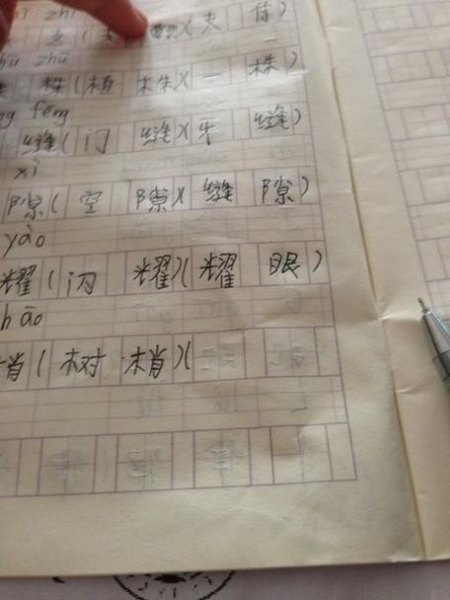 zhī
(夫
zhū
株(植株)(一株)
fèng
缝(门缝)(牙缝)
xì
隙(空隙)(缝隙)
yào
耀(闪耀)(耀眼)
hāo
梢(树梢)(